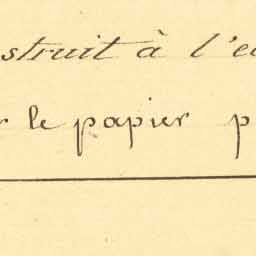 struit à l'e
le papier p